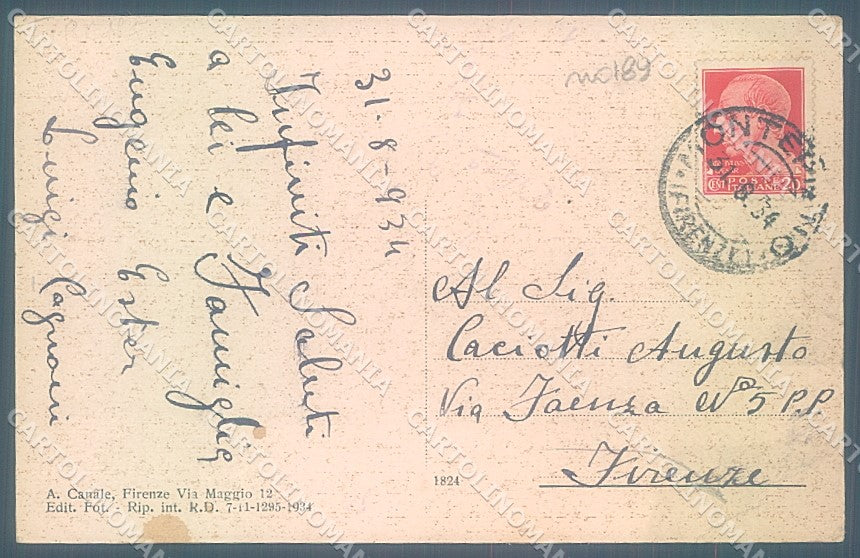 31-8-934
Infiniti Saluti
a lei e Famiglia
Eugenio Ester
Luigi
no189
POSTE
ITALIANE
CENT 20
31.8.34
(FIRENZE)
Al Sig.
Caciotti Augusto
Via Faenza Nº 5 P.P.
Firenze
A. Canale, Firenze Via Maggio 12
Edit. Fot. - Rip. int. R.D. 7-11-1295-1934
1824
CARTOLINOMANIA